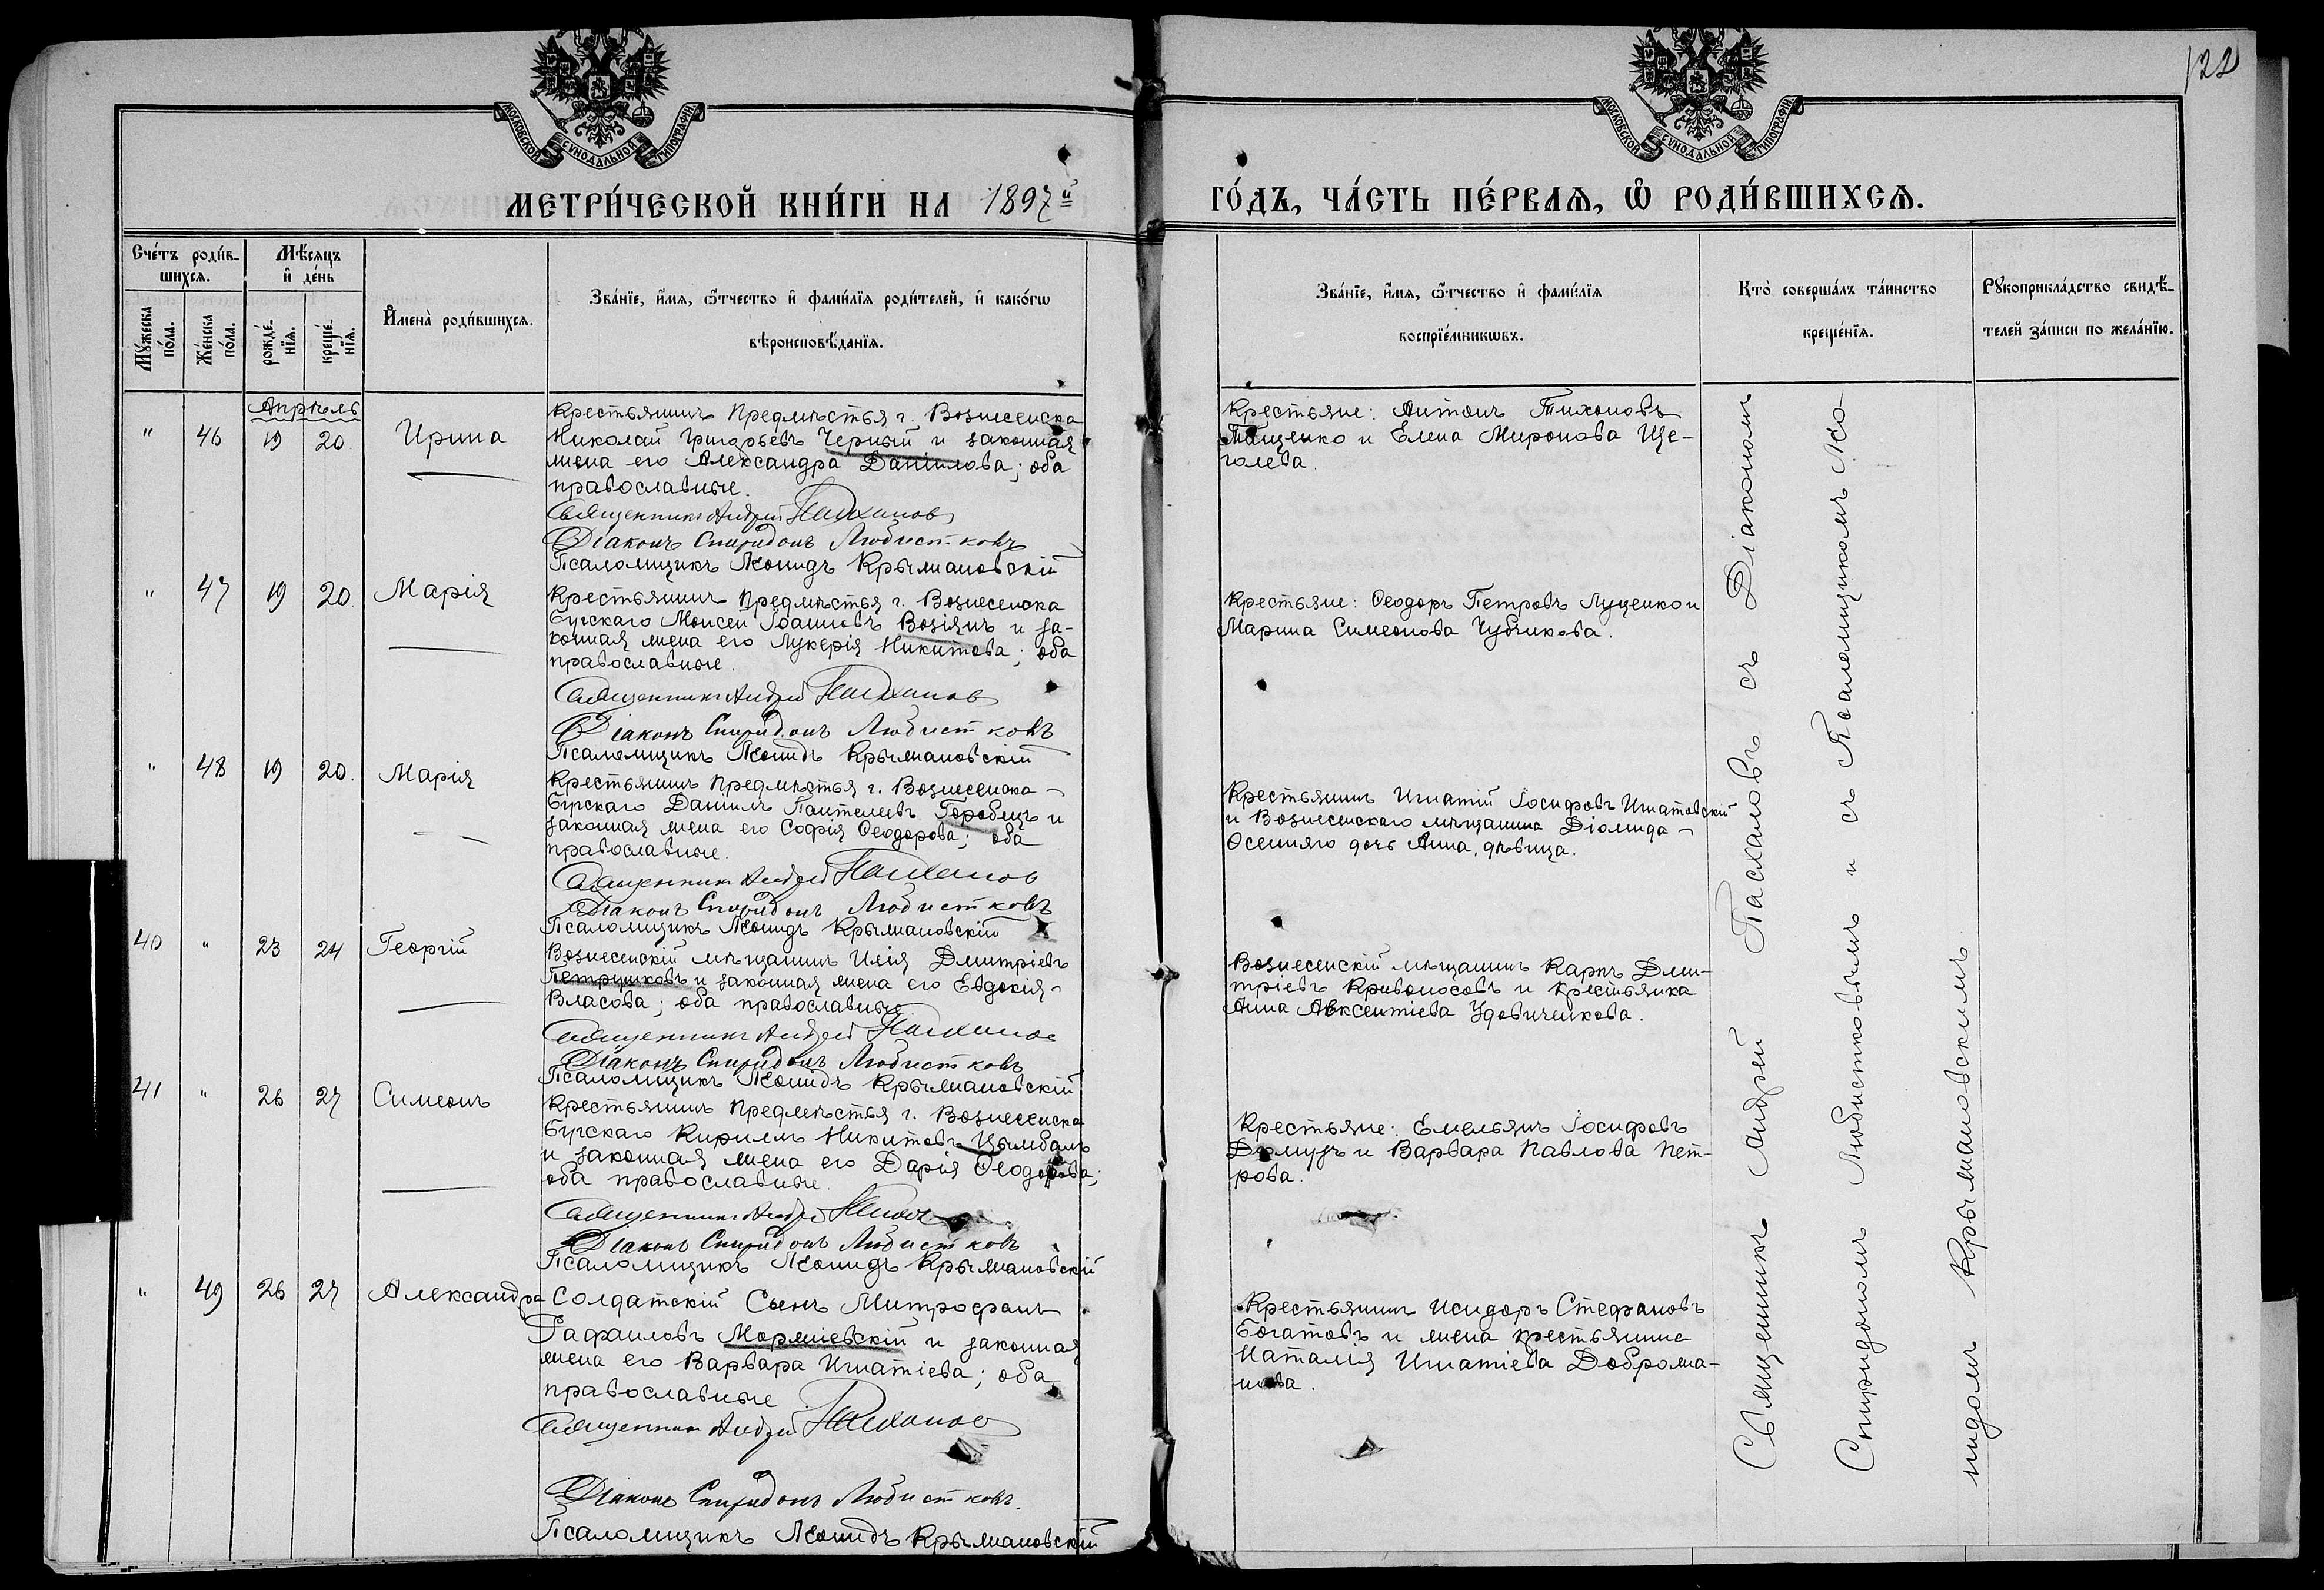 122
МОСКОВСКОЙ СѴНОДАЛЬНОЙ ТИПОГРАФІИ
МОСКОВСКОЙ СѴНОДАЛЬНОЙ ТИПОГРАФІИ
МЕТРИ́ЧЕСКОЙ КНИ́ГИ НА 1897й
ГО́ДЪ, ЧА́СТЬ ПЕ́РВАѦ, Ѽ РОДИ́ВШИХСѦ.
Сче́тъ роди́в-
шихсѧ.
Мѣ́сяцъ
и҆ де́нь
Мꙋ́жеска по́ла.
Же́нска по́ла.
рожде́-
нїѧ.
креще́-
нїѧ.
И҆мена̀ роди́вшихсѧ.
Зва́нїе, и҆́мѧ, ѻ҆́тчество и҆ фами́лїѧ роди́телей, и҆ како́гѡ
вѣроисповѣ́данїѧ.
Зва́нїе, и҆́мѧ, ѻ҆́тчество и҆ фами́лїѧ
воспрїе́мникѡвъ.
Кто̀ соверша́лъ та́инство
креще́нїѧ.
Рꙋкоприкла́дство свидѣ́-
телей за́писи по жела́нїю.
Апрѣль
" 46 19 20 Ирина
Крестьянинъ Предмѣстья г. Вознесенска
Николай Григорьевъ Черный и законная
жена его Александра Даніилова; оба
православные.
Священникъ Андрей Пасхаловъ
Діаконъ Спиридонъ Любистковъ
Псаломщикъ Леонидъ Крыжановскій
Крестьяне: Антонъ Тихоновъ
Тищенко и Елена Миронова Ще-
голева.
" 47 19 20. Марія
Крестьянинъ Предмѣстья г. Вознесенска
Бугскаго Моисей Іоанновъ Возіянъ и за-
конная жена его Лукерія Никитова; оба
православные.
Священникъ Андрей Пасхаловъ
Діаконъ Спиридонъ Любистковъ
Псаломщикъ Леонидъ Крыжановскій
Крестьяне: Ѳеодоръ Петровъ Луценко и
Марина Симеонова Чубчикова.
" 48 19 20. Марія
Крестьянинъ Предмѣстья г. Вознесенска
Бугскаго Даніилъ Пантелеевъ Горобецъ и
законная жена его Софія Ѳеодорова; оба
православные.
Священникъ Андрей Пасхаловъ
Діаконъ Спиридонъ Любистковъ
Псаломщикъ Леонидъ Крыжановскій
Крестьянинъ Игнатій Іосифовъ Игнатовскій
и Вознесенскаго мѣщанина Діомида
Осенняго дочь Анна, дѣвица.
40 " 23 24 Георгій
Вознесенскій мѣщанинъ Илія Дмитріевъ
Петриковъ и законная жена его Евдокія
Власова; оба православные
Священникъ Андрей Пасхаловъ
Діаконъ Спиридонъ Любистковъ
Псаломщикъ Леонидъ Крыжановскій
Вознесенскій мѣщанинъ Карпъ Дми-
тріевъ Кривоносовъ и крестьянка
Анна Авксентіева Удовиченкова.
41 " 26 27 Симеонъ
Крестьянинъ Предмѣстья г. Вознесенска
Бугскаго Кириллъ Никитовъ Цымбалъ
и законная жена его Дарія Ѳеодорова;
оба православные.
Священникъ Андрей
Діаконъ Спиридонъ Любистковъ
Псаломщикъ Леонидъ Крыжановскій
Крестьяне: Емельянъ Іосифовъ
и Варвара Павлова Пет-
рова.
" 49 26 27 Александра
Солдатскій Сынъ Митрофанъ
Рафаиловъ Моржіевскій и законная
жена его Варвара Игнатіева; оба
православные
Священникъ Андрей Пасхаловъ
Діаконъ Спиридонъ Любистковъ.
Псаломщикъ Леонидъ Крыжановскій
Крестьянинъ Исидоръ Стефановъ
Богатовъ и жена крестьянина
Наталія Игнатіева Доброжа-
нова.
Священникъ Андрей Пасхаловъ съ Діакономъ
Спиридономъ Любистковымъ и съ Псаломщикомъ Лео-
нидомъ Крыжановскимъ